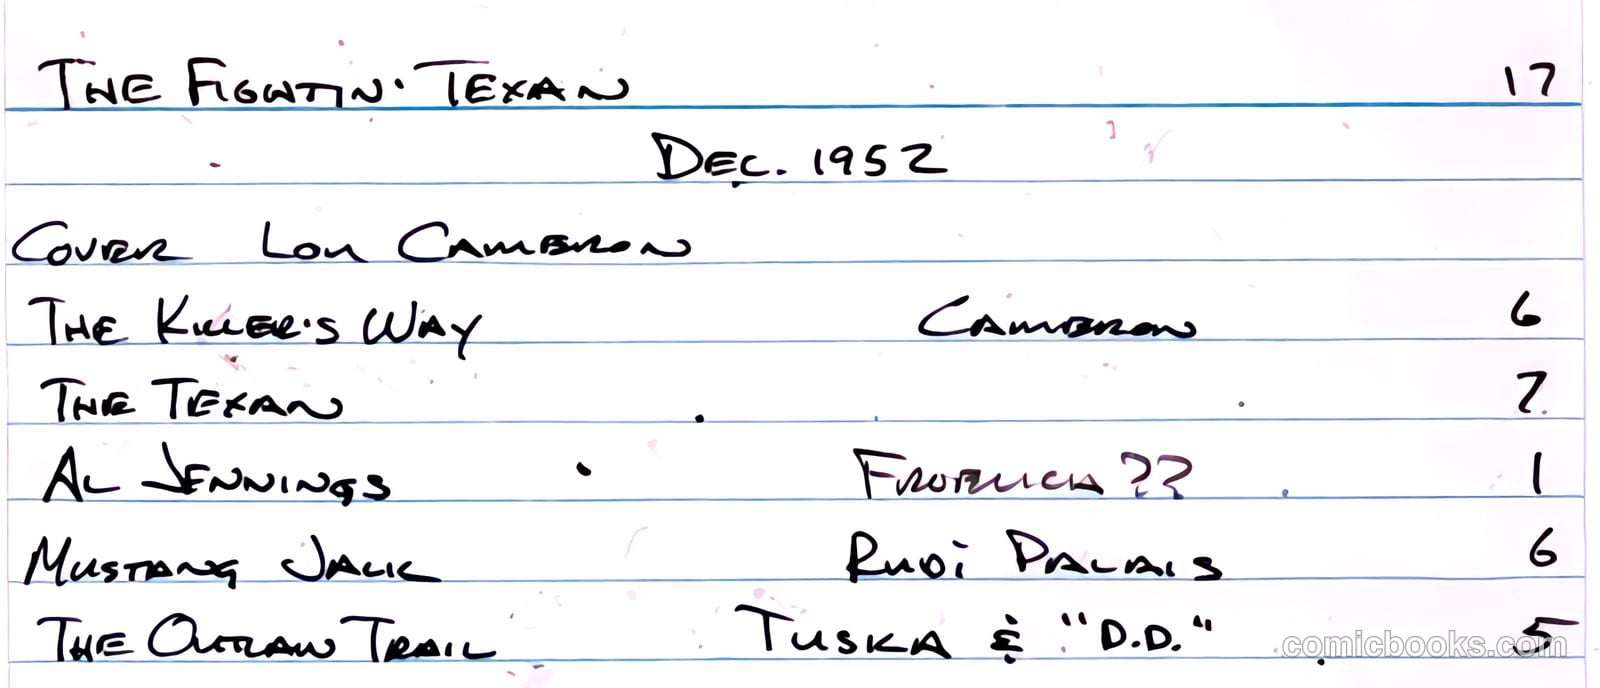 THE FIGHTIN' TEXAN 17
DEC. 1952
COVER LOU CAMERON
THE KILLER'S WAY CAMERON 6
THE TEXAN 7
AL JENNINGS FROEHLICH?? 1
MUSTANG JACK RUDI PALAIS 6
THE OUTLAW TRAIL TUSKA & "D.D." 5
comicbooks.com